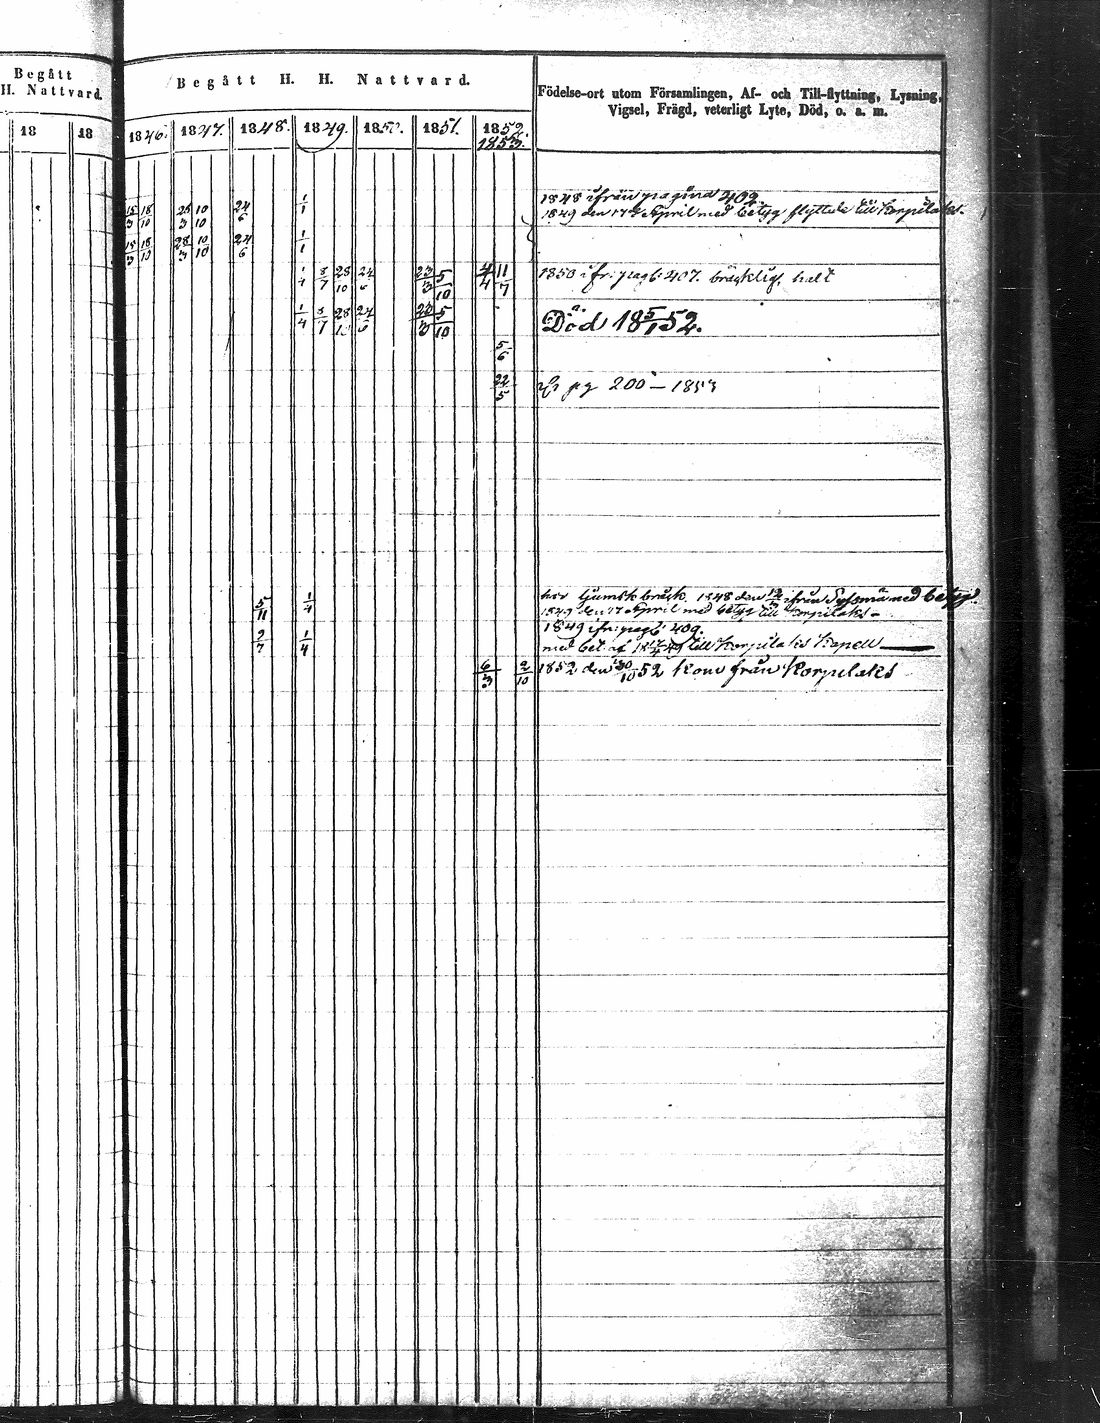 Begått
H. Nattvard.
Begått H. H. Nattvard.
Födelse-ort utom Församlingen, Af- och Till-flyttning, Lysning,
Vigsel, Frägd, veterligt Lyte, Död, o. a. m.
18 18 1846. 1847. 1848. 1849. 1850. 1851. 1852.
1853.
15/3 18/10 28/3 10/10 24/6 1/1 1848 ifrån pagina 402.
1849 den 17 April med betyg flyttade till Korpilaks.
15/3 18/10 28/3 10/10 24/6 1/1
1/4 8/7 28/10 24/6 23/3 5/10 4/4 11/7 1850 ifr. pag: 407. bräcklig, halt
1/4 8/7 28/10 24/6 23/3 5/10 Död 18 5/1 52.
5/6
22/5 pg 200 — 1853
5/11 1/4 har ljumsk bråck. 1848 den ifrån Sysmä med betyg.
1849 den 17 April med betyg till Korpilaks —
1849 ifr: pag: 409.
2/7 1/4 med bet. af 17/4 49 till Korpilaks Kapell
6/3 2/10 1852 den 30/10 52 kom från Korpilaks